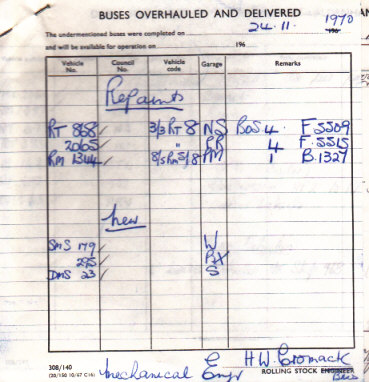 BUSES OVERHAULED AND DELIVERED
The undermentioned buses were completed on 24.11. 1970 196
and will be available for operation on 196
Vehicle No. Council No. Vehicle code Garage Remarks
Repaints
RT 868 / 3/3 RT 8 NS BOS 4 F 5509
2065 / " RR 4 F.5515
RM 1344 / 8/5 RM 5/8 PM 1 B.1327
New
SMS 179 / W
295 / PX
DMS 23 / S
308/140
(20/150 10/67 C-16) Mechanical Engr H.W. Cromack
ROLLING STOCK ENGINEER